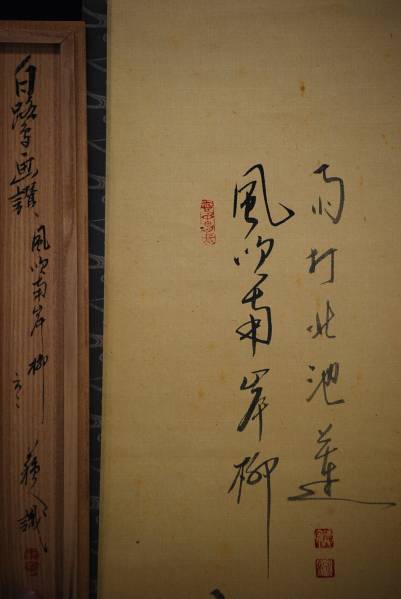 風吹南岸柳
雨打北池蓮
白鷺画讃 風吹南岸柳
云々
識